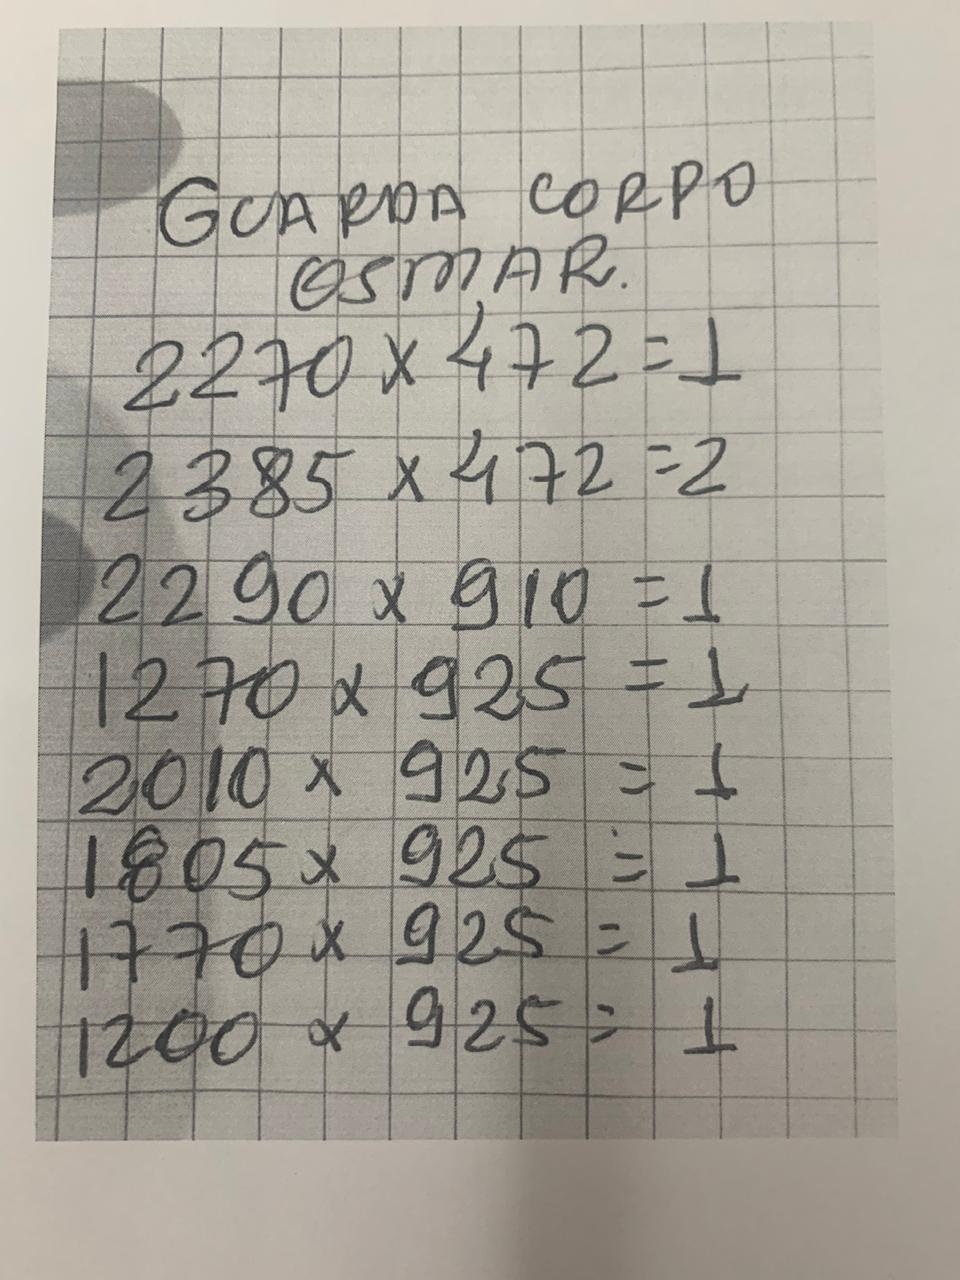 GUARDA CORPO
OSMAR.
2270 x 472 = 1
2385 x 472 = 2
2290 x 910 = 1
1270 x 925 = 1
2010 x 925 = 1
1805 x 925 = 1
1770 x 925 = 1
1200 x 925 = 1